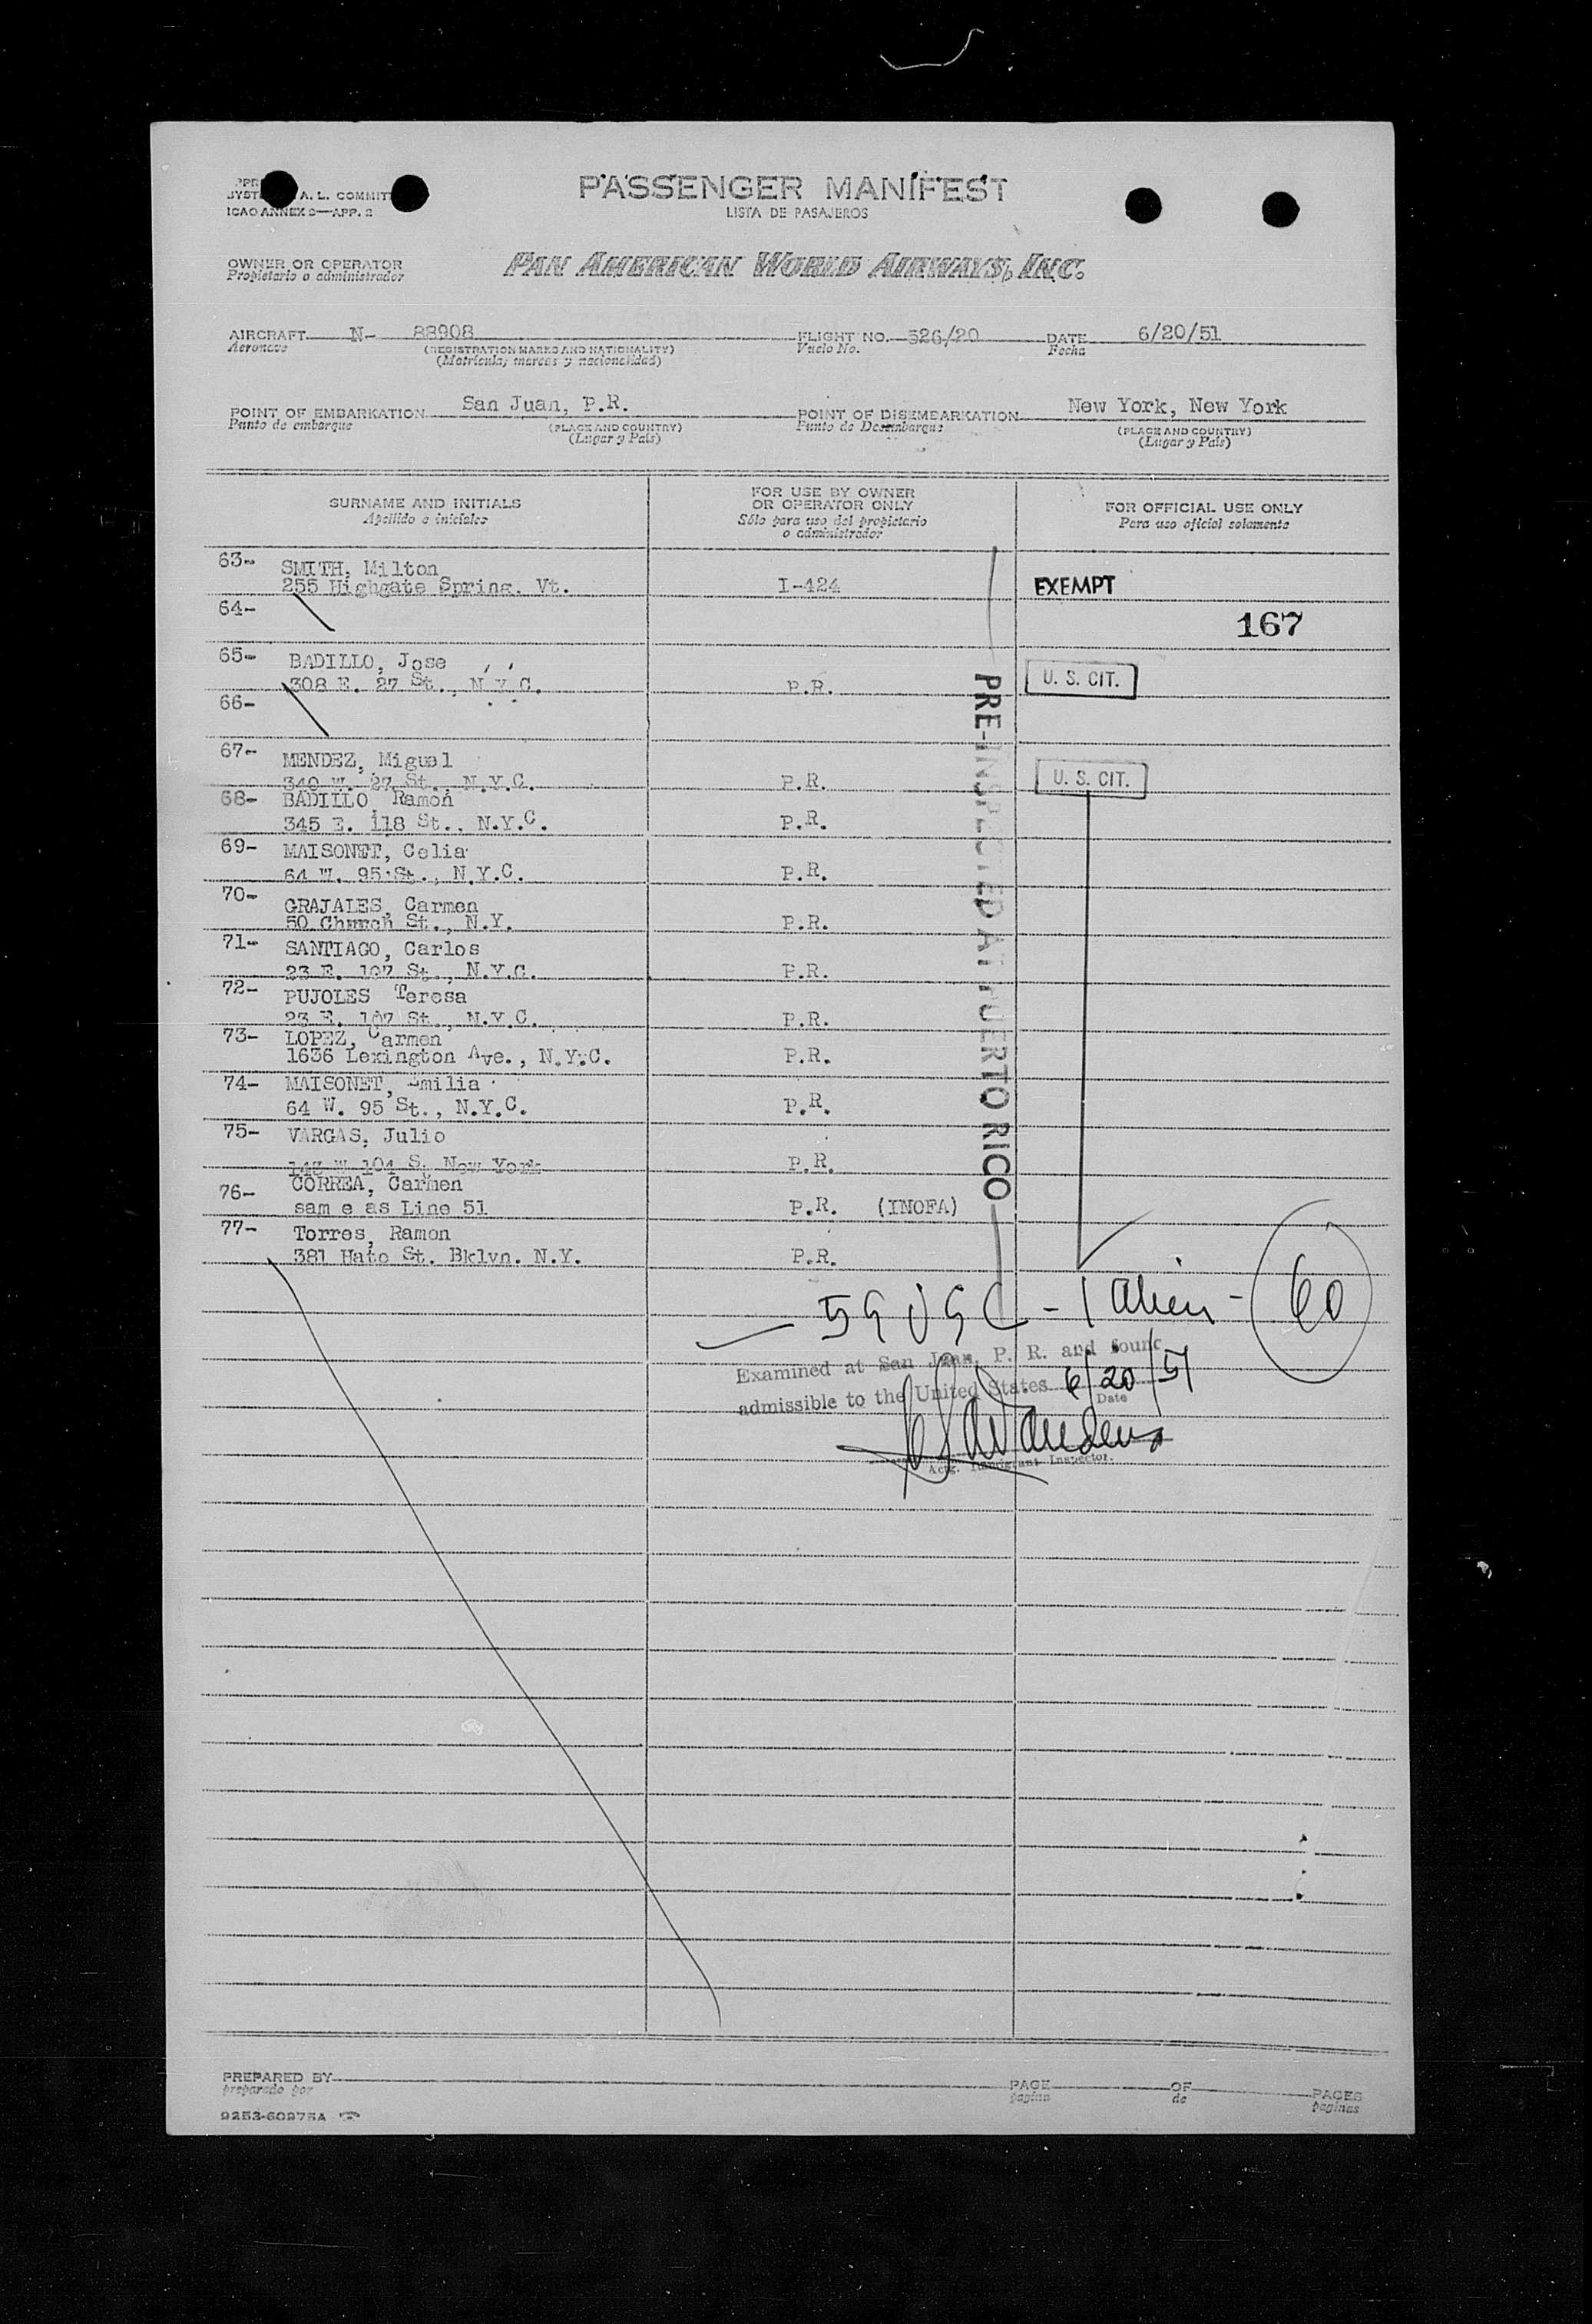 A. L. COMMIT
ICAO ANNEX 2—APP. 2
PASSENGER MANIFEST
LISTA DE PASAJEROS
OWNER OR OPERATOR
Propietario o administrador
PAN AMERICAN WORLD AIRWAYS, INC.
AIRCRAFT N- 88908 FLIGHT NO. 526/20 DATE 6/20/51
Aeronave (REGISTRATION MARKS AND NATIONALITY) Vuelo No. Fecha
(Matrícula, marcas y nacionalidad)
POINT OF EMBARKATION San Juan, P.R. POINT OF DISEMBARKATION New York, New York
Punto de embarque (PLACE AND COUNTRY) Punto de Desembarque (PLACE AND COUNTRY)
(Lugar y País) (Lugar y País)
SURNAME AND INITIALS FOR USE BY OWNER OR OPERATOR ONLY FOR OFFICIAL USE ONLY
Apellido e iniciales Sólo para uso del propietario o administrador Para uso oficial solamente
63- SMITH, Milton
255 Highgate Spring. Vt. I-424 EXEMPT
64- 167
65- BADILLO, Jose
308 E. 27 St., N.Y.C. P.R. U. S. CIT.
66-
67- MENDEZ, Miguel
340 W. 27 St., N.Y.C. P.R. U. S. CIT.
68- BADILLO Ramon
345 E. 118 St., N.Y.C. P.R.
69- MAISONET, Celia
64 W. 95 St., N.Y.C. P.R.
70- GRAJALES, Carmen
50 Church St., N.Y. P.R.
71- SANTIAGO, Carlos
23 E. 107 St., N.Y.C. P.R.
72- PUJOLES Teresa
23 E. 107 St., N.Y.C. P.R.
73- LOPEZ, Carmen
1636 Lexington Ave., N.Y.C. P.R.
74- MAISONET, Emilia
64 W. 95 St., N.Y.C. P.R.
75- VARGAS, Julio
143 W 104 S. New York P.R.
76- CORREA, Carmen
sam e as Line 51 P.R. (INOFA)
77- Torres, Ramon
381 Hate St. Bklyn. N.Y. P.R.
PRE-INSPECTED AT PUERTO RICO
59 USC - 1 alien - 60
Examined at San Juan, P. R. and found
admissible to the United States 6/20/51
Date
Actg. Immigrant Inspector.
PREPARED BY PAGE OF PAGES
preparado por pagina de paginas
9253-60975A